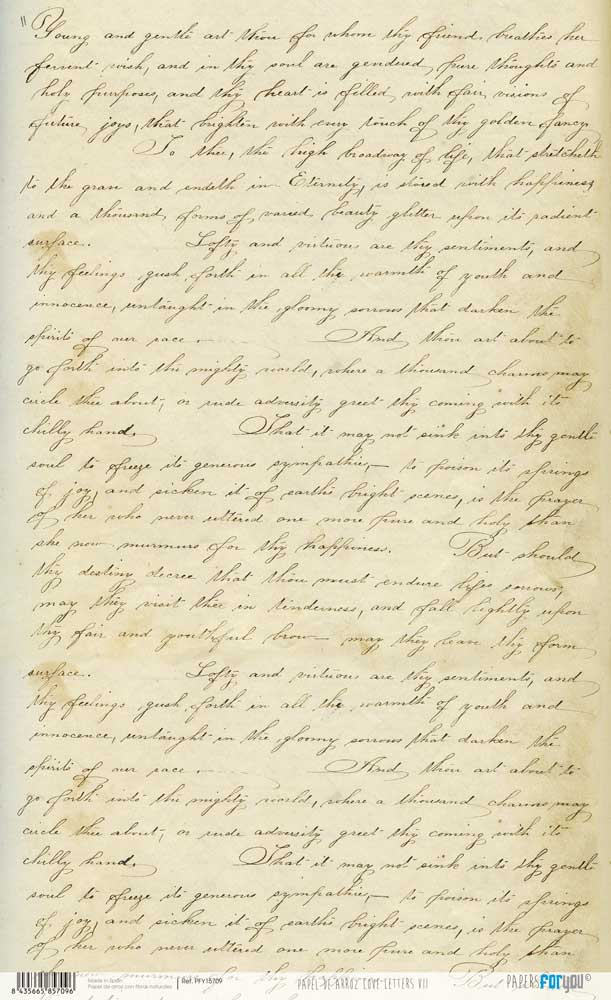 "Young and gentle art thou for whom thy friend breathes her
fervent wish, and in thy soul are gendered pure thoughts and
holy purposes, and thy heart is filled with fair visions of
future joys, that brighten with every touch of thy golden fancy
To thee, the high broadway of life, that stretcheth
to the grave and endeth in Eternity, is stored with happiness
and a thousand forms of varied beauty glitter upon its radient
surface. Lofty and virtuous are thy sentiments, and
thy feelings gush forth in all the warmth of youth and
innocence, untaught in the gloomy sorrows that darken the
spirits of our race. And thou art about to
go forth into the mighty world, where a thousand charms may
circle thee about, or rude adversity greet thy coming with its
chilly hand. That it may not sink into thy gentle
soul to freeze its generous sympathies,— to poison its springs
of joy, and sicken it of earth's bright scenes, is the prayer
of her who never uttered one more pure and holy than
she now murmurs for thy happiness. But should
thy destiny decree that thou must endure life's sorrows,
may they visit thee in tenderness, and fall lightly upon
thy fair and youthful brow— may they leave thy form
surface. Lofty and virtuous are thy sentiments, and
thy feelings gush forth in all the warmth of youth and
innocence, untaught in the gloomy sorrows that darken the
spirits of our race. And thou art about to
go forth into the mighty world, where a thousand charms may
circle thee about, or rude adversity greet thy coming with its
chilly hand. That it may not sink into thy gentle
soul to freeze its generous sympathies,— to poison its springs
of joy, and sicken it of earth's bright scenes, is the prayer
of her who never uttered one more pure and holy than
But
8 435665 857096
Made in Spain
Papel de arroz con fibras naturales
Ref. PFY15709
PAPEL DE ARROZ LOVE LETTERS VII
PAPERSFORyou®